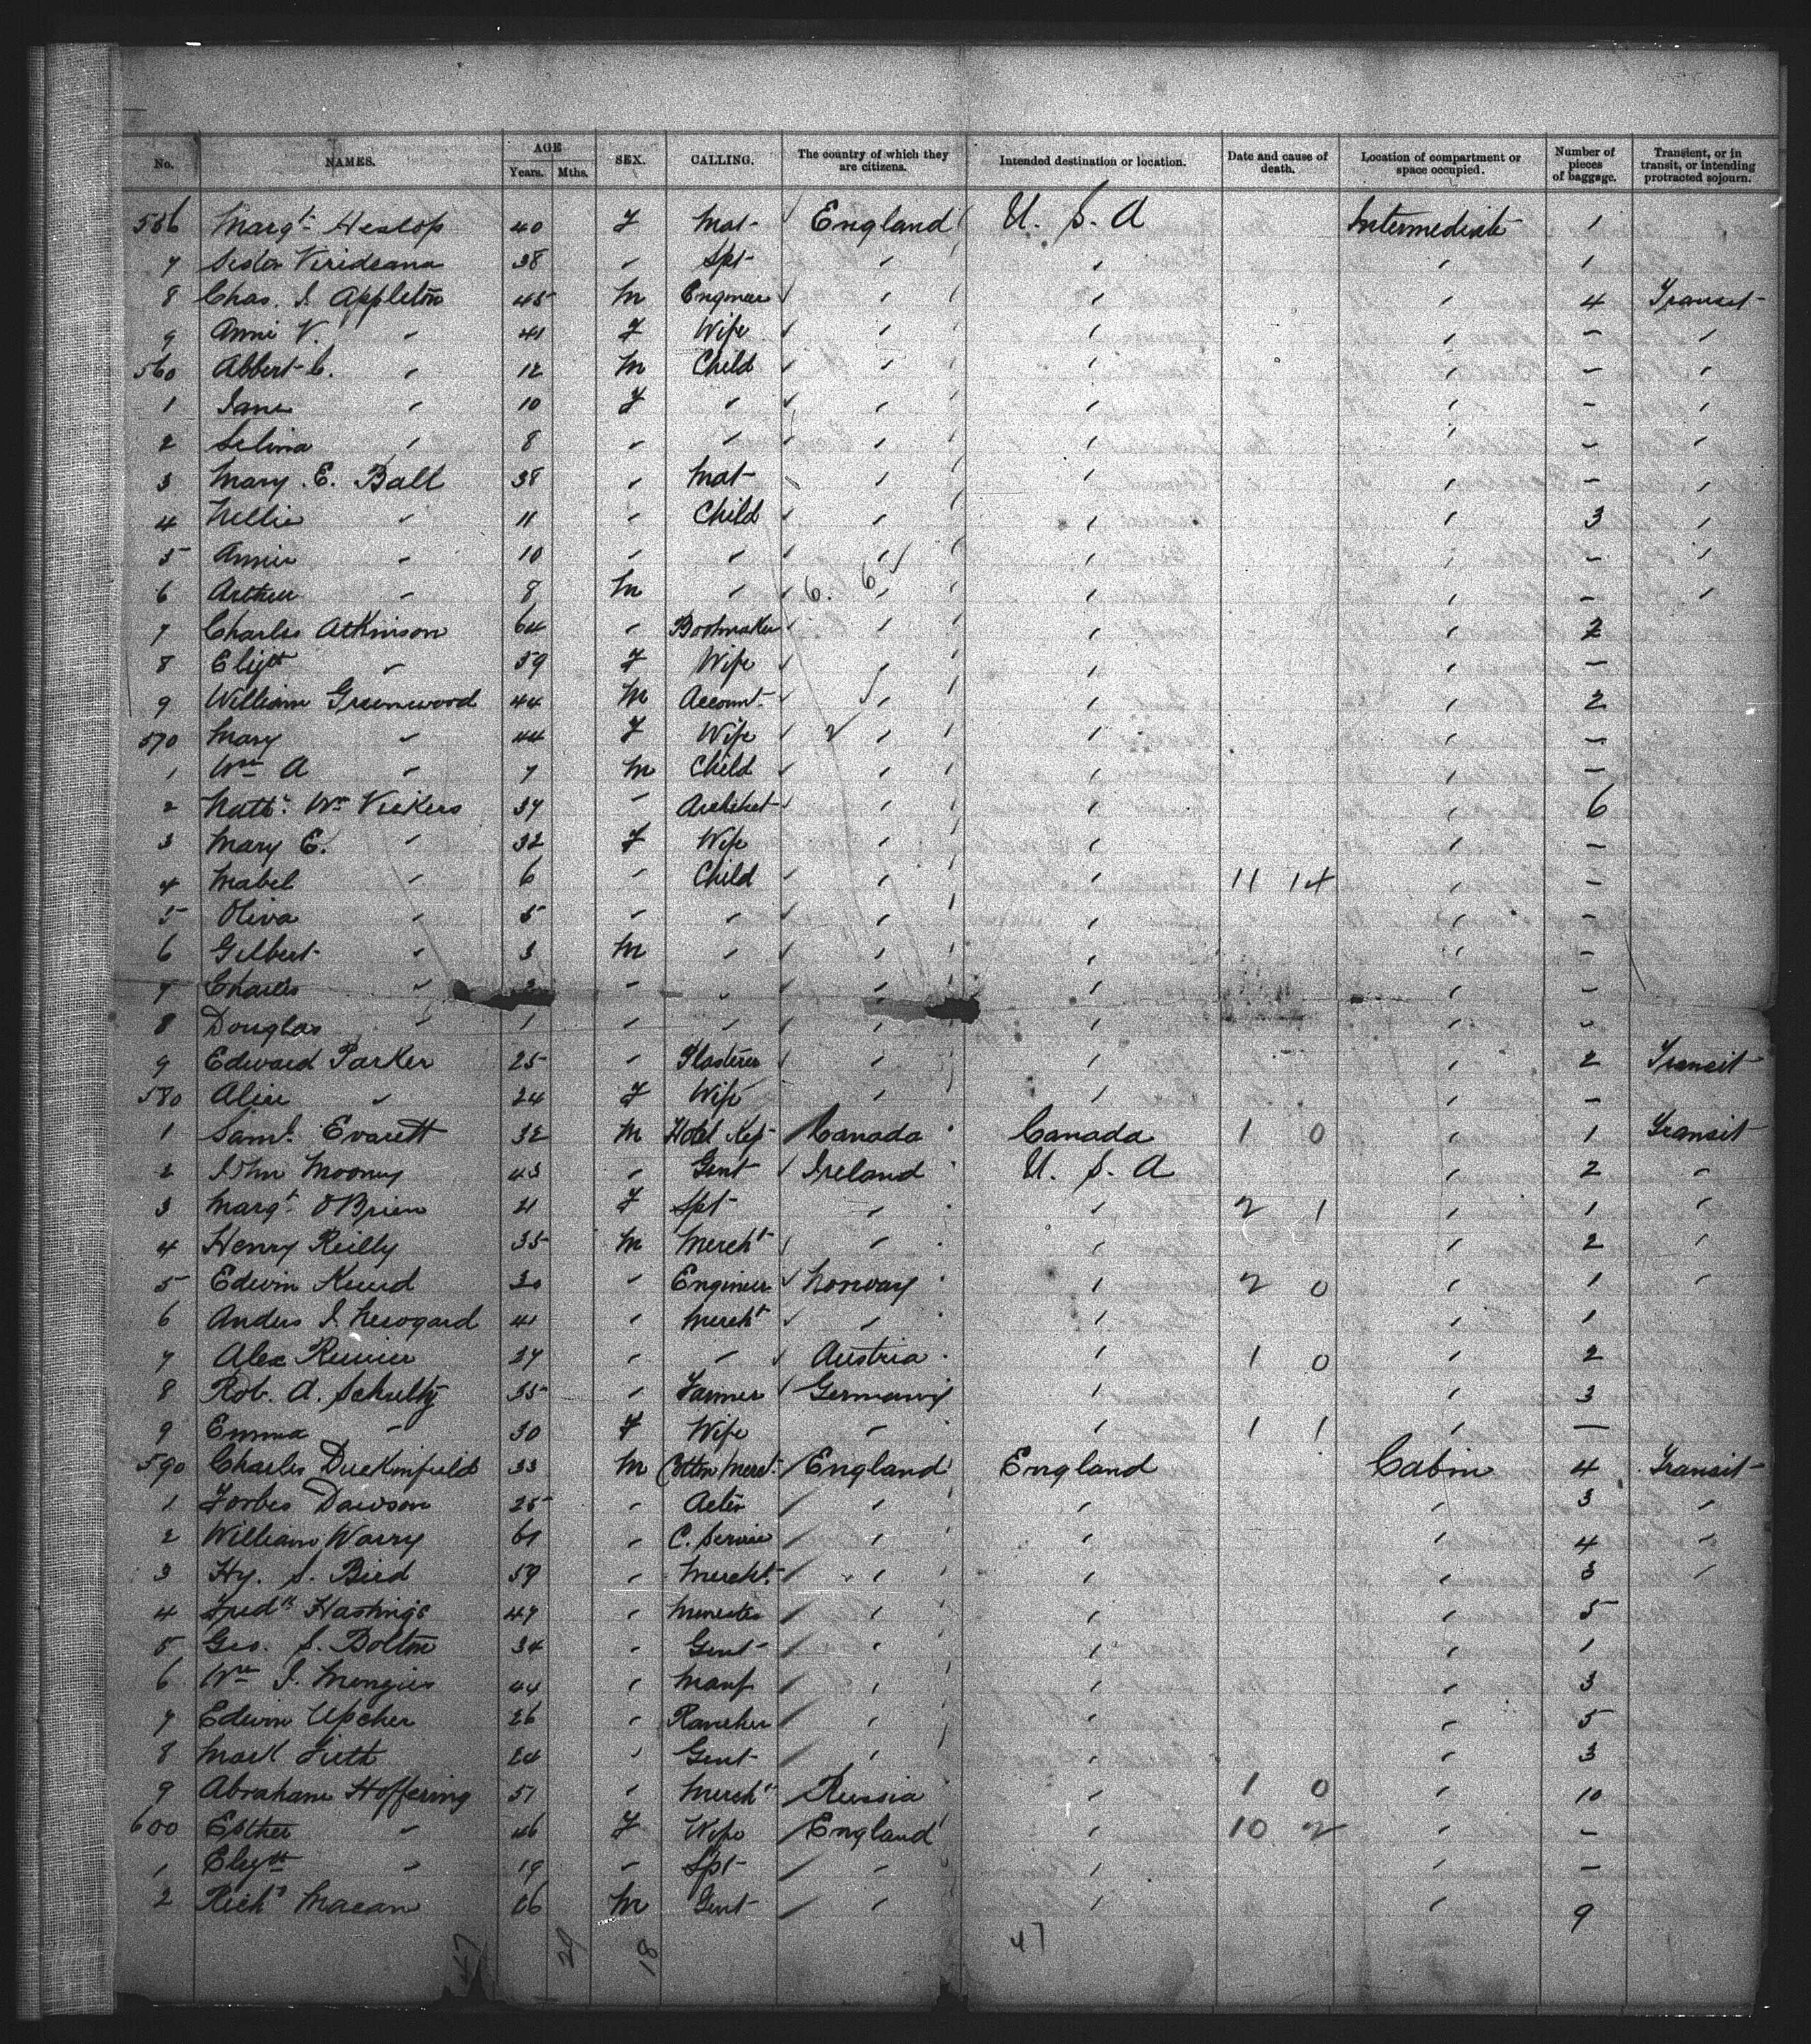 No. NAMES. AGE Years. Mths. SEX. CALLING. The country of which they are citizens. Intended destination or location. Date and cause of death. Location of compartment or space occupied. Number of pieces of baggage. Transient, or in transit, or intending protracted sojourn.
556 Margt Heslop 40 F Mat- England U. S. A Intermediate 1
7 Sister Virideana 38 " Spt- " " " 1
8 Chas. J. Appleton 45 M Engineer " " " 4 Transit
9 Anni V. " 41 F Wife " " " - "
560 Albert C. " 12 M Child " " " - "
1 Jane " 10 F " " " " - "
2 Selina " 8 " " " " " - "
3 Mary. E. Ball 38 " Mat- " " " - "
4 Nellie " 11 " Child " " " 3 "
5 Annie " 10 " " " " " - "
6 Arthur " 8 M " 6. 6 " " " - "
7 Charles Atkinson 64 " Bootmaker " " " 2
8 Elizth " 59 F Wife " " " -
9 William Greenwood 44 M Account. " " " 2
570 Mary " 44 F Wife 2 " " " -
1 Wm A " 7 M Child " " " -
2 Nathl. Wm Vickers 37 " Architect " " " 6
3 Mary E. " 32 F Wife " " " -
4 Mabel " 6 " Child " " 11 14 " -
5 Oliva " 5 " " " " " -
6 Gilbert " 3 M " " " " -
7 Charles " " " " " " -
8 Douglas " 1 " " " " " -
9 Edward Parker 25 " Plasterer " " " 2 Transit
580 Alice " 24 F Wife " " " -
1 Saml. Everett 32 M Hotel Kep- Canada Canada 1 0 " 1 Transit
2 John Mooney 43 " Gent Ireland U. S. A " 2 "
3 Margt. O'Brien 21 F Spt- " " 2 1 " 1 "
4 Henry Reilly 35 M Mercht " " " 2 "
5 Edwin 30 " Engineer Norway " 2 0 " 1 "
6 Anders J. 41 " Mercht " " " 1
7 Alex 37 " " Austria " 1 0 " 2
8 Rob. A. Schultz 35 " Farmer Germany " " 3
9 Emma " 30 F Wife " " 1 1 " -
590 Charles Duckinfield 33 M Cotton Merct. England England Cabin 4 Transit
1 Forbes Dawson 25 " Actor " " " 3 "
2 William Warry 61 " C. Service " " " 4 "
3 Hy. S. Bird 59 " Mercht. " " " 3 "
4 Fredk Hastings 47 " Minister " " " 5
5 Geo. S. Bolton 34 " Gent- " " " 1
6 Wm J. Menzies 44 " Manf " " " 3
7 Edwin Upcher 26 " Rancher " " " 5
8 Mark Firth 24 " Gent- " " " 3
9 Abraham Hoffering 51 " Mercht Russia " 1 0 " 10
600 Esther " 46 F Wife England " 10 2 " -
1 Elizth " 19 " Spt- " " " -
2 Richd Macan 66 M Gent- " " " 9
47 29 18 47